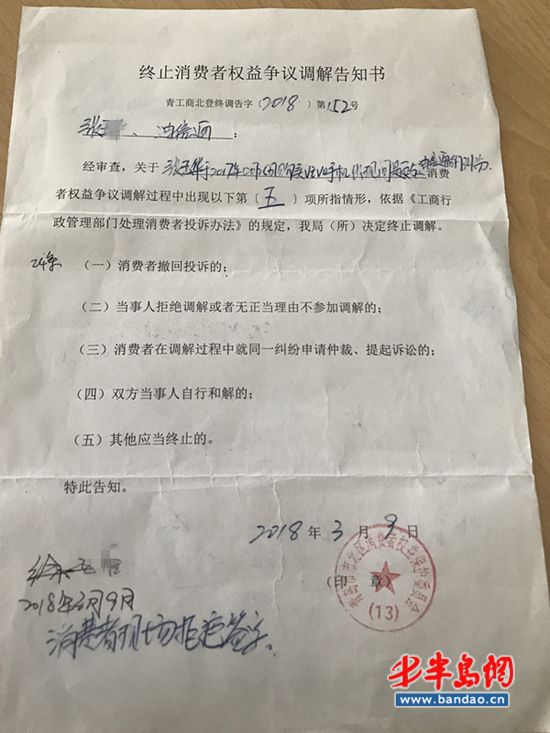 终止消费者权益争议调解告知书
青工商北登终调告字〔2018〕第152号
张
经审查，关于 张玉华于2017年 手机 问题与 消费
者权益争议调解过程中出现以下第（五）项所指情形，依据《工商行
政管理部门处理消费者投诉办法》的规定，我局（所）决定终止调解。
24条 （一）消费者撤回投诉的；
（二）当事人拒绝调解或者无正当理由不参加调解的；
（三）消费者在调解过程中就同一纠纷申请仲裁、提起诉讼的；
（四）双方当事人自行和解的；
（五）其他应当终止的。
特此告知。
2018年3月9日
（印 章）
青岛市市北区消费者权益保护委员会
(13)
2018年3月9日
消费者现场拒绝签字.
半岛网
www.bandao.cn